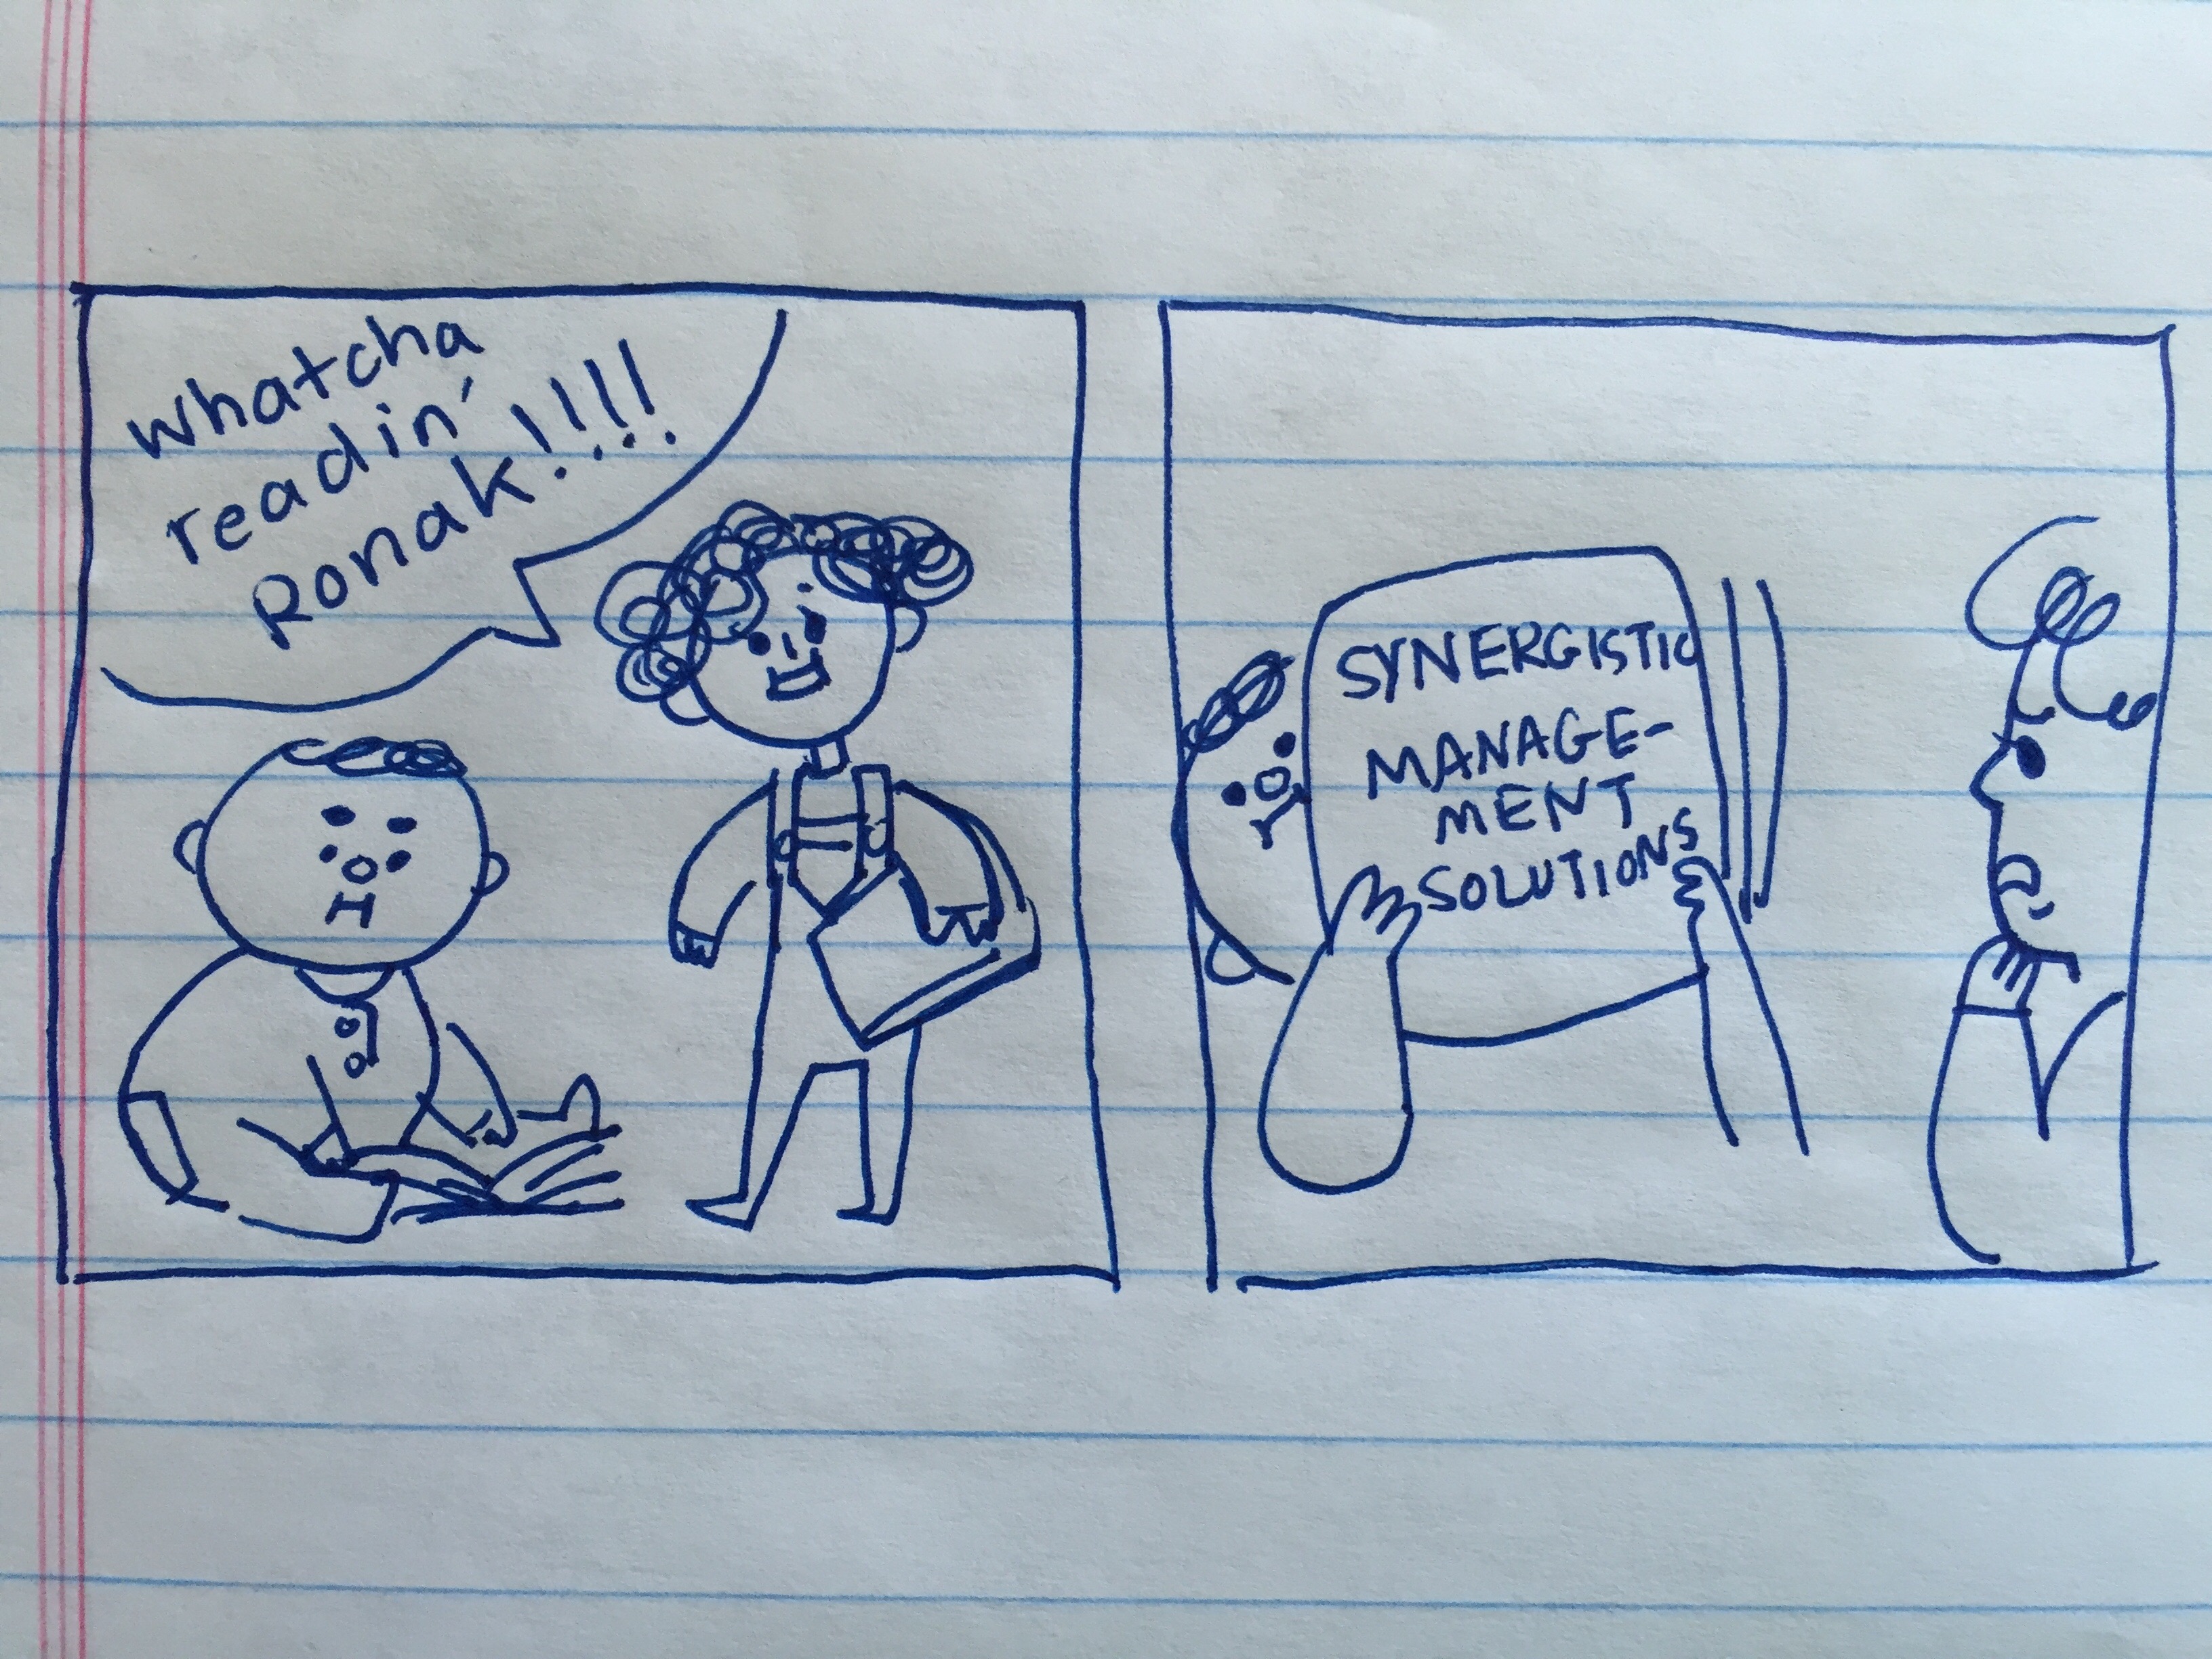 Whatcha
readin'
Ronak!!!!
SYNERGISTIC
MANAGE-
MENT
SOLUTIONS